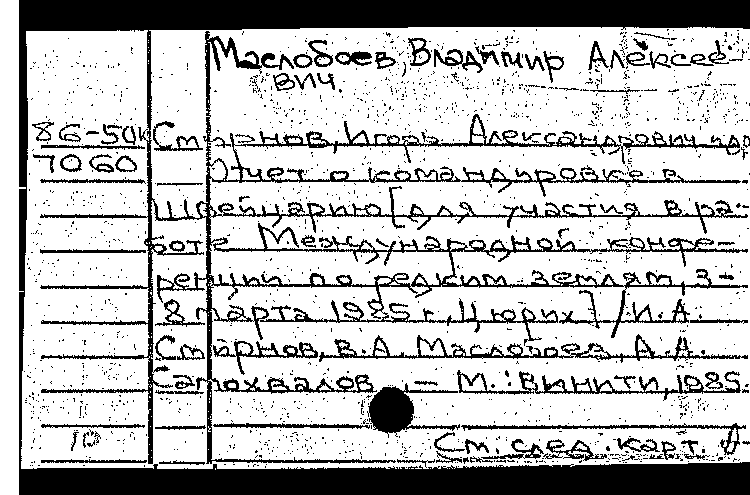 Маслобоев, Владимир Алексее-
вич.
86-50к Смирнов, Игорь Александрович и др
7060 Отчет о командировке в
Швейцарию [для участия в ра-
боте Международной конфе-
ренции по редким землям, 3-
8 марта 1985 г., Цюрих] / И.А.
Смирнов, В.А. Маслобоев, А.А.
Самохвалов. — М.: ВИНИТИ, 1985.
10 См. след. карт.